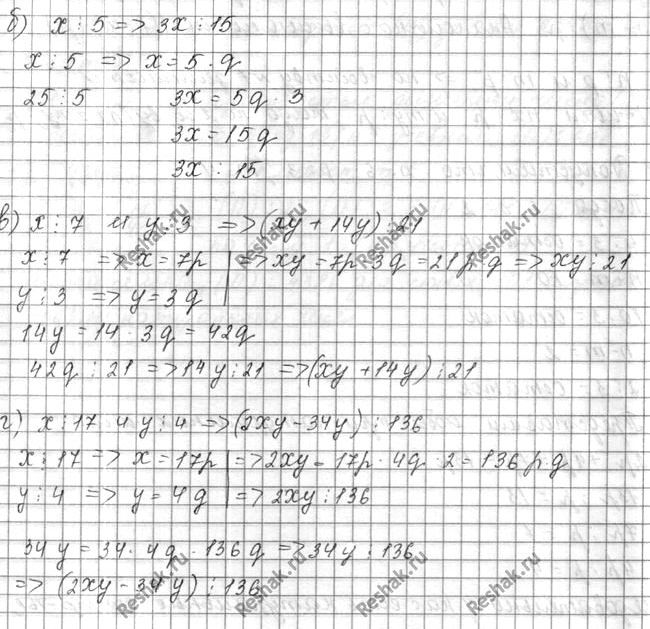 б) x ⋮ 5 => 3x ⋮ 15
x ⋮ 5 => x = 5 · q
25 ⋮ 5 3x = 5q · 3
3x = 15q
3x ⋮ 15
в) x ⋮ 7 и y ⋮ 3 => (xy + 14y) ⋮ 21
x ⋮ 7 => x = 7p | => xy = 7p · 3q = 21 p · q => xy ⋮ 21
y ⋮ 3 => y = 3q
14y = 14 · 3q = 42q
42q ⋮ 21 => 14y ⋮ 21 => (xy + 14y) ⋮ 21
г) x ⋮ 17 и y ⋮ 4 => (2xy - 34y) ⋮ 136
x ⋮ 17 => x = 17p | => 2xy = 17p · 4q · 2 = 136 p · q
y ⋮ 4 => y = 4q | => 2xy ⋮ 136
34y = 34 · 4q · 136q => 34y ⋮ 136
=> (2xy - 34y) ⋮ 136
Reshak.ru
Reshak.ru
Reshak.ru
Reshak.ru
Reshak.ru
Reshak.ru
Reshak.ru
Reshak.ru
Reshak.ru
Reshak.ru
Reshak.ru
Reshak.ru